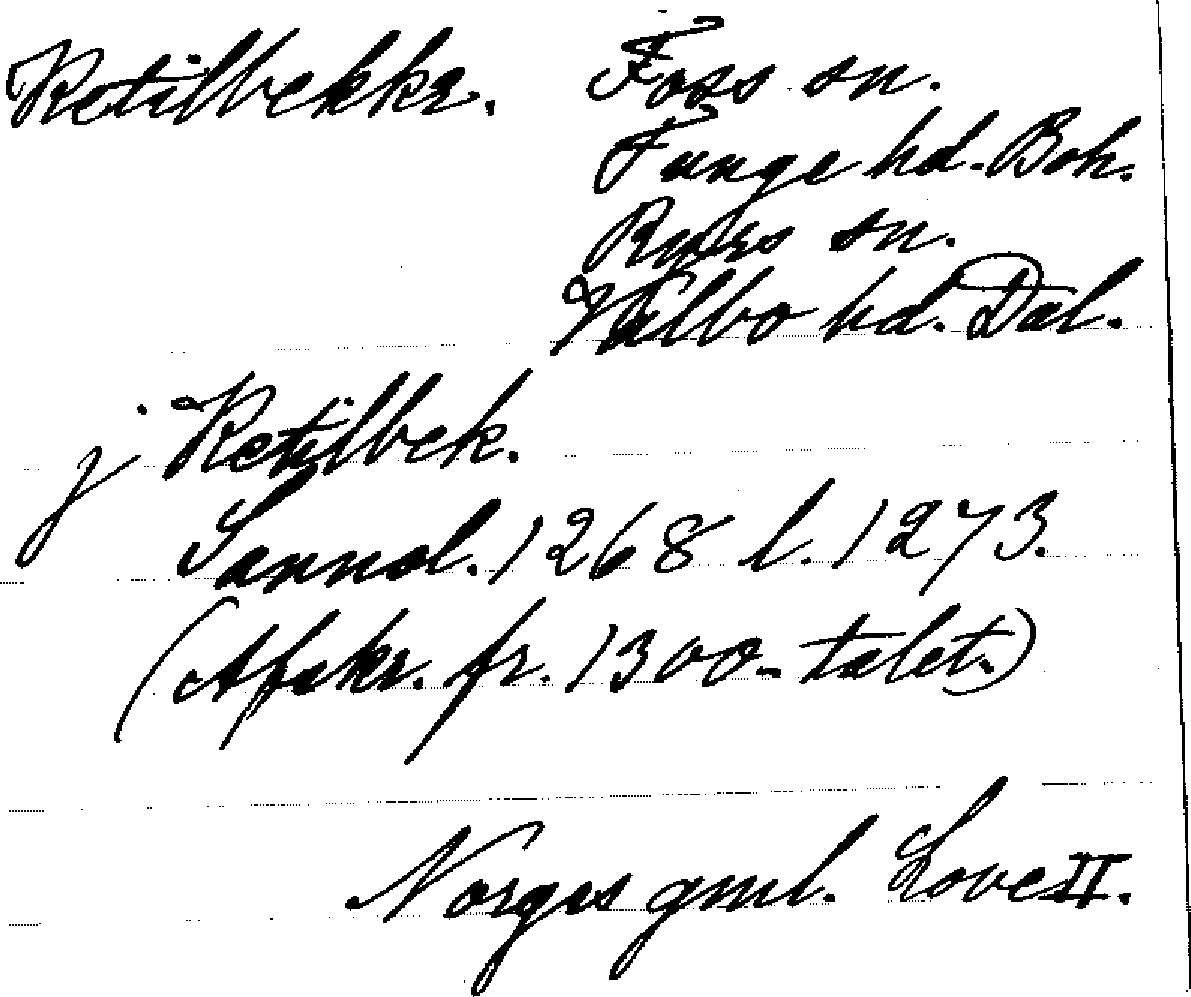 Ketilbekkr. Foss sn.
Tunge hd. Boh.
Rölrs sn.
Valbo hd. Dal.
j Ketilbek.
Sannol. 1268 l. 1273.
(Afskr. fr. 1300-talet.)
Norges gml. Love II.